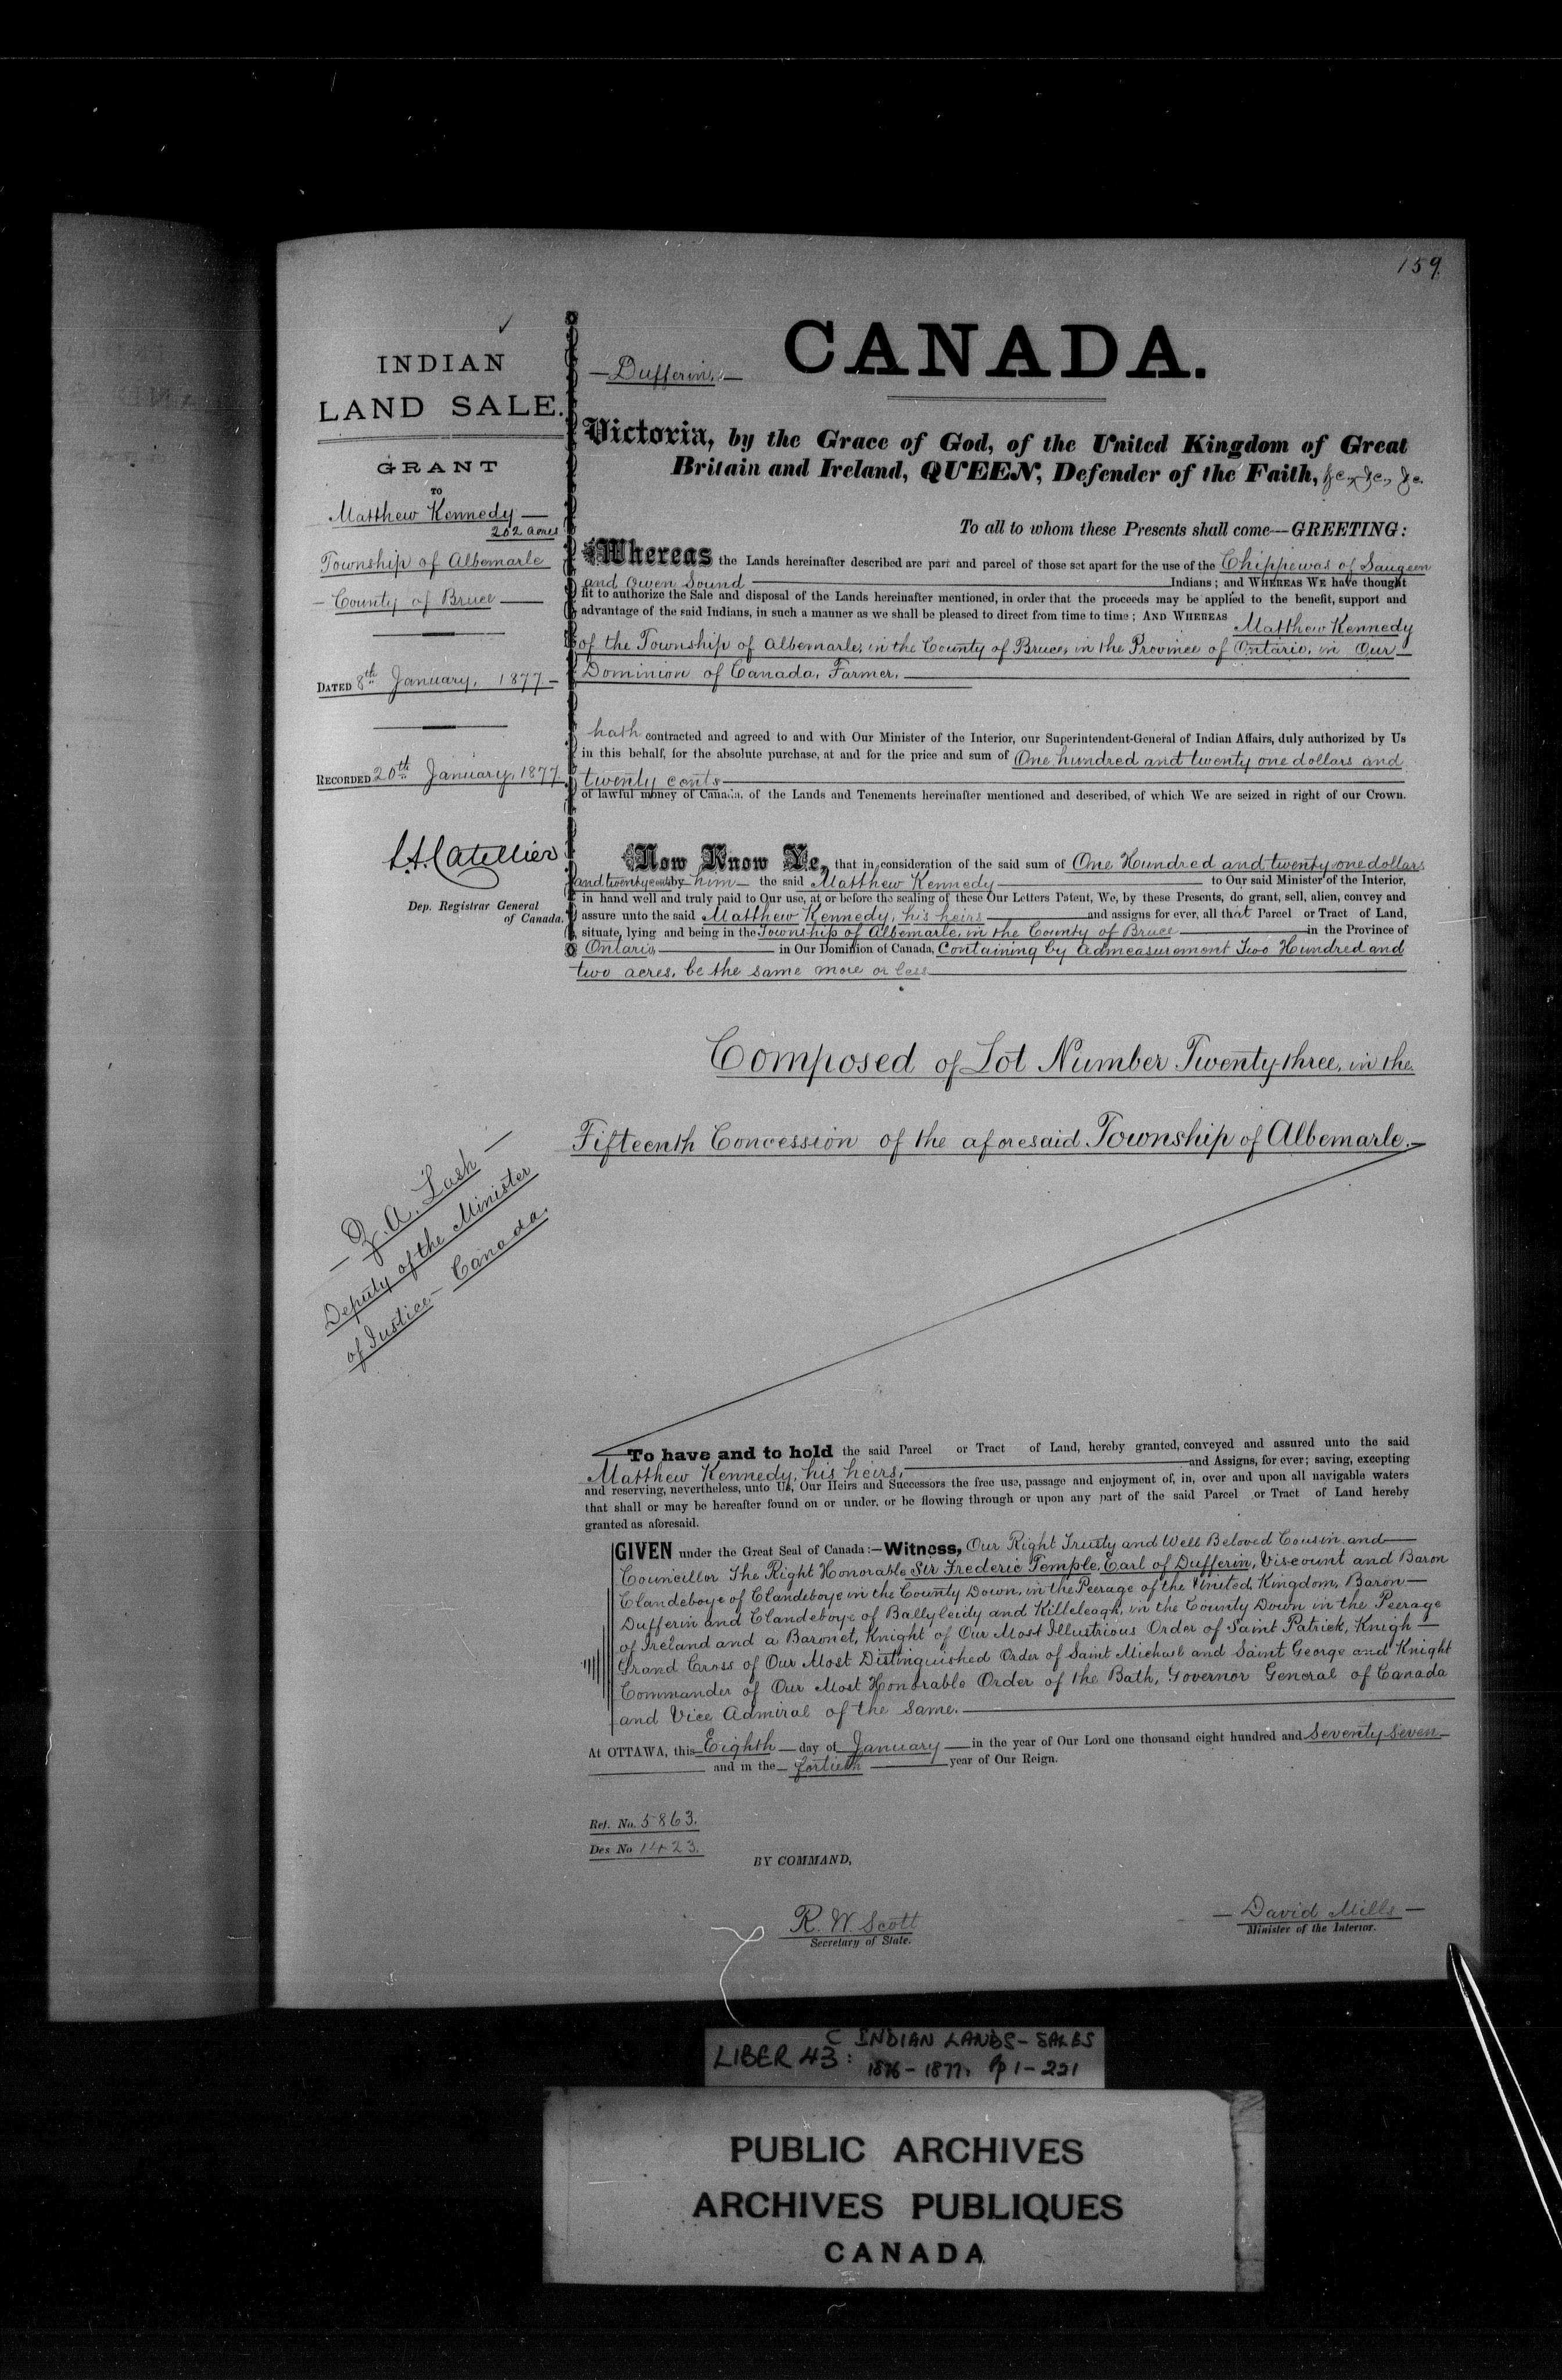 159
INDIAN
LAND SALE.
GRANT
TO
Matthew Kennedy
202 acres
Township of Albemarle
County of Bruce
DATED 8th January, 1877
RECORDED 20th January, 1877
Dep. Registrar General
of Canada.
Z. A. Lash
Deputy of the Minister
of Justice - Canada.
Dufferin.
CANADA.
Victoria, by the Grace of God, of the United Kingdom of Great
Britain and Ireland, QUEEN, Defender of the Faith, &c., &c., &c.
To all to whom these Presents shall come---GREETING:
Whereas the Lands hereinafter described are part and parcel of those set apart for the use of the Chippewas of Saugeen
and Owen Sound Indians; and WHEREAS WE have thought
fit to authorize the Sale and disposal of the Lands hereinafter mentioned, in order that the proceeds may be applied to the benefit, support and
advantage of the said Indians, in such a manner as we shall be pleased to direct from time to time; AND WHEREAS Matthew Kennedy
of the Township of Albemarle, in the County of Bruce, in the Province of Ontario, in Our
Dominion of Canada, Farmer,
hath contracted and agreed to and with Our Minister of the Interior, our Superintendent-General of Indian Affairs, duly authorized by Us
in this behalf, for the absolute purchase, at and for the price and sum of One hundred and twenty one dollars and
twenty cents
of lawful money of Canada, of the Lands and Tenements hereinafter mentioned and described, of which We are seized in right of our Crown.
Now Know Ye, that in consideration of the said sum of One Hundred and twenty one dollars
and twenty cents by him the said Matthew Kennedy to Our said Minister of the Interior,
in hand well and truly paid to Our use, at or before the sealing of these Our Letters Patent, We, by these Presents, do grant, sell, alien, convey and
assure unto the said Matthew Kennedy, his heirs and assigns for ever, all that Parcel or Tract of Land,
situate, lying and being in the Township of Albemarle, in the County of Bruce in the Province of
Ontario, in Our Dominion of Canada, Containing by Admeasurement Two Hundred and
two acres, be the same more or less
Composed of Lot Number Twenty-three, in the
Fifteenth Concession of the aforesaid Township of Albemarle.
To have and to hold the said Parcel or Tract of Land, hereby granted, conveyed and assured unto the said
Matthew Kennedy, his heirs, and Assigns, for ever; saving, excepting
and reserving, nevertheless, unto Us, Our Heirs and Successors the free use, passage and enjoyment of, in, over and upon all navigable waters
that shall or may be hereafter found on or under, or be flowing through or upon any part of the said Parcel or Tract of Land hereby
granted as aforesaid.
GIVEN under the Great Seal of Canada:—Witness, Our Right Trusty and Well Beloved Cousin and
Councillor The Right Honorable Sir Frederic Temple, Earl of Dufferin, Viscount and Baron
Clandeboye of Clandeboye in the County Down, in the Peerage of the United Kingdom, Baron
Dufferin and Clandeboye of Ballyleidy and Killeleagh, in the County Down in the Peerage
of Ireland and a Baronet, Knight of Our Most Illustrious Order of Saint Patrick, Knigh
Grand Cross of Our Most Distinguished Order of Saint Michael and Saint George and Knight
Commander of Our Most Honorable Order of the Bath, Governor General of Canada
and Vice Admiral of the Same.
At OTTAWA, this Eighth day of January in the year of Our Lord one thousand eight hundred and Seventy Seven
and in the fortieth year of Our Reign.
Ref. No. 5863.
Des No 1423.
BY COMMAND,
R. W. Scott
Secretary of State.
David Mills
Minister of the Interior.
LIBER 43: C INDIAN LANDS - SALES
1876 - 1877. Pp 1 - 221
PUBLIC ARCHIVES
ARCHIVES PUBLIQUES
CANADA